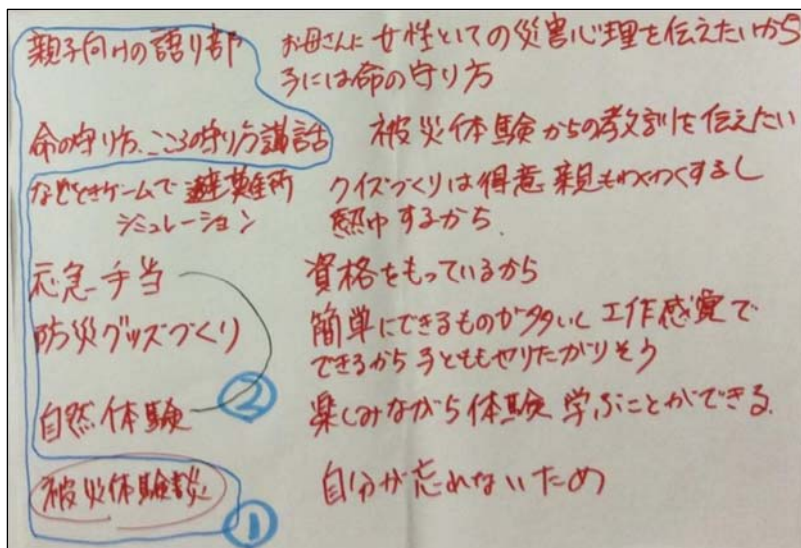 親子向けの語り部 お母さんに女性としての災害心理を伝えたいから
子には命の守り方
命の守り方、こころの守り方講話 被災体験からの教訓を伝えたい
なぞときゲームで避難所 クイズづくりは得意 親もわくわくするし
シミュレーション 熱中するから
応急手当 資格をもっているから
防災グッズづくり 簡単にできるものが多いし 工作感覚で
できるから 子どももやりたがりそう
自然体験 ② 楽しみながら体験 学ぶことができる
被災体験談 自分が忘れないため
①